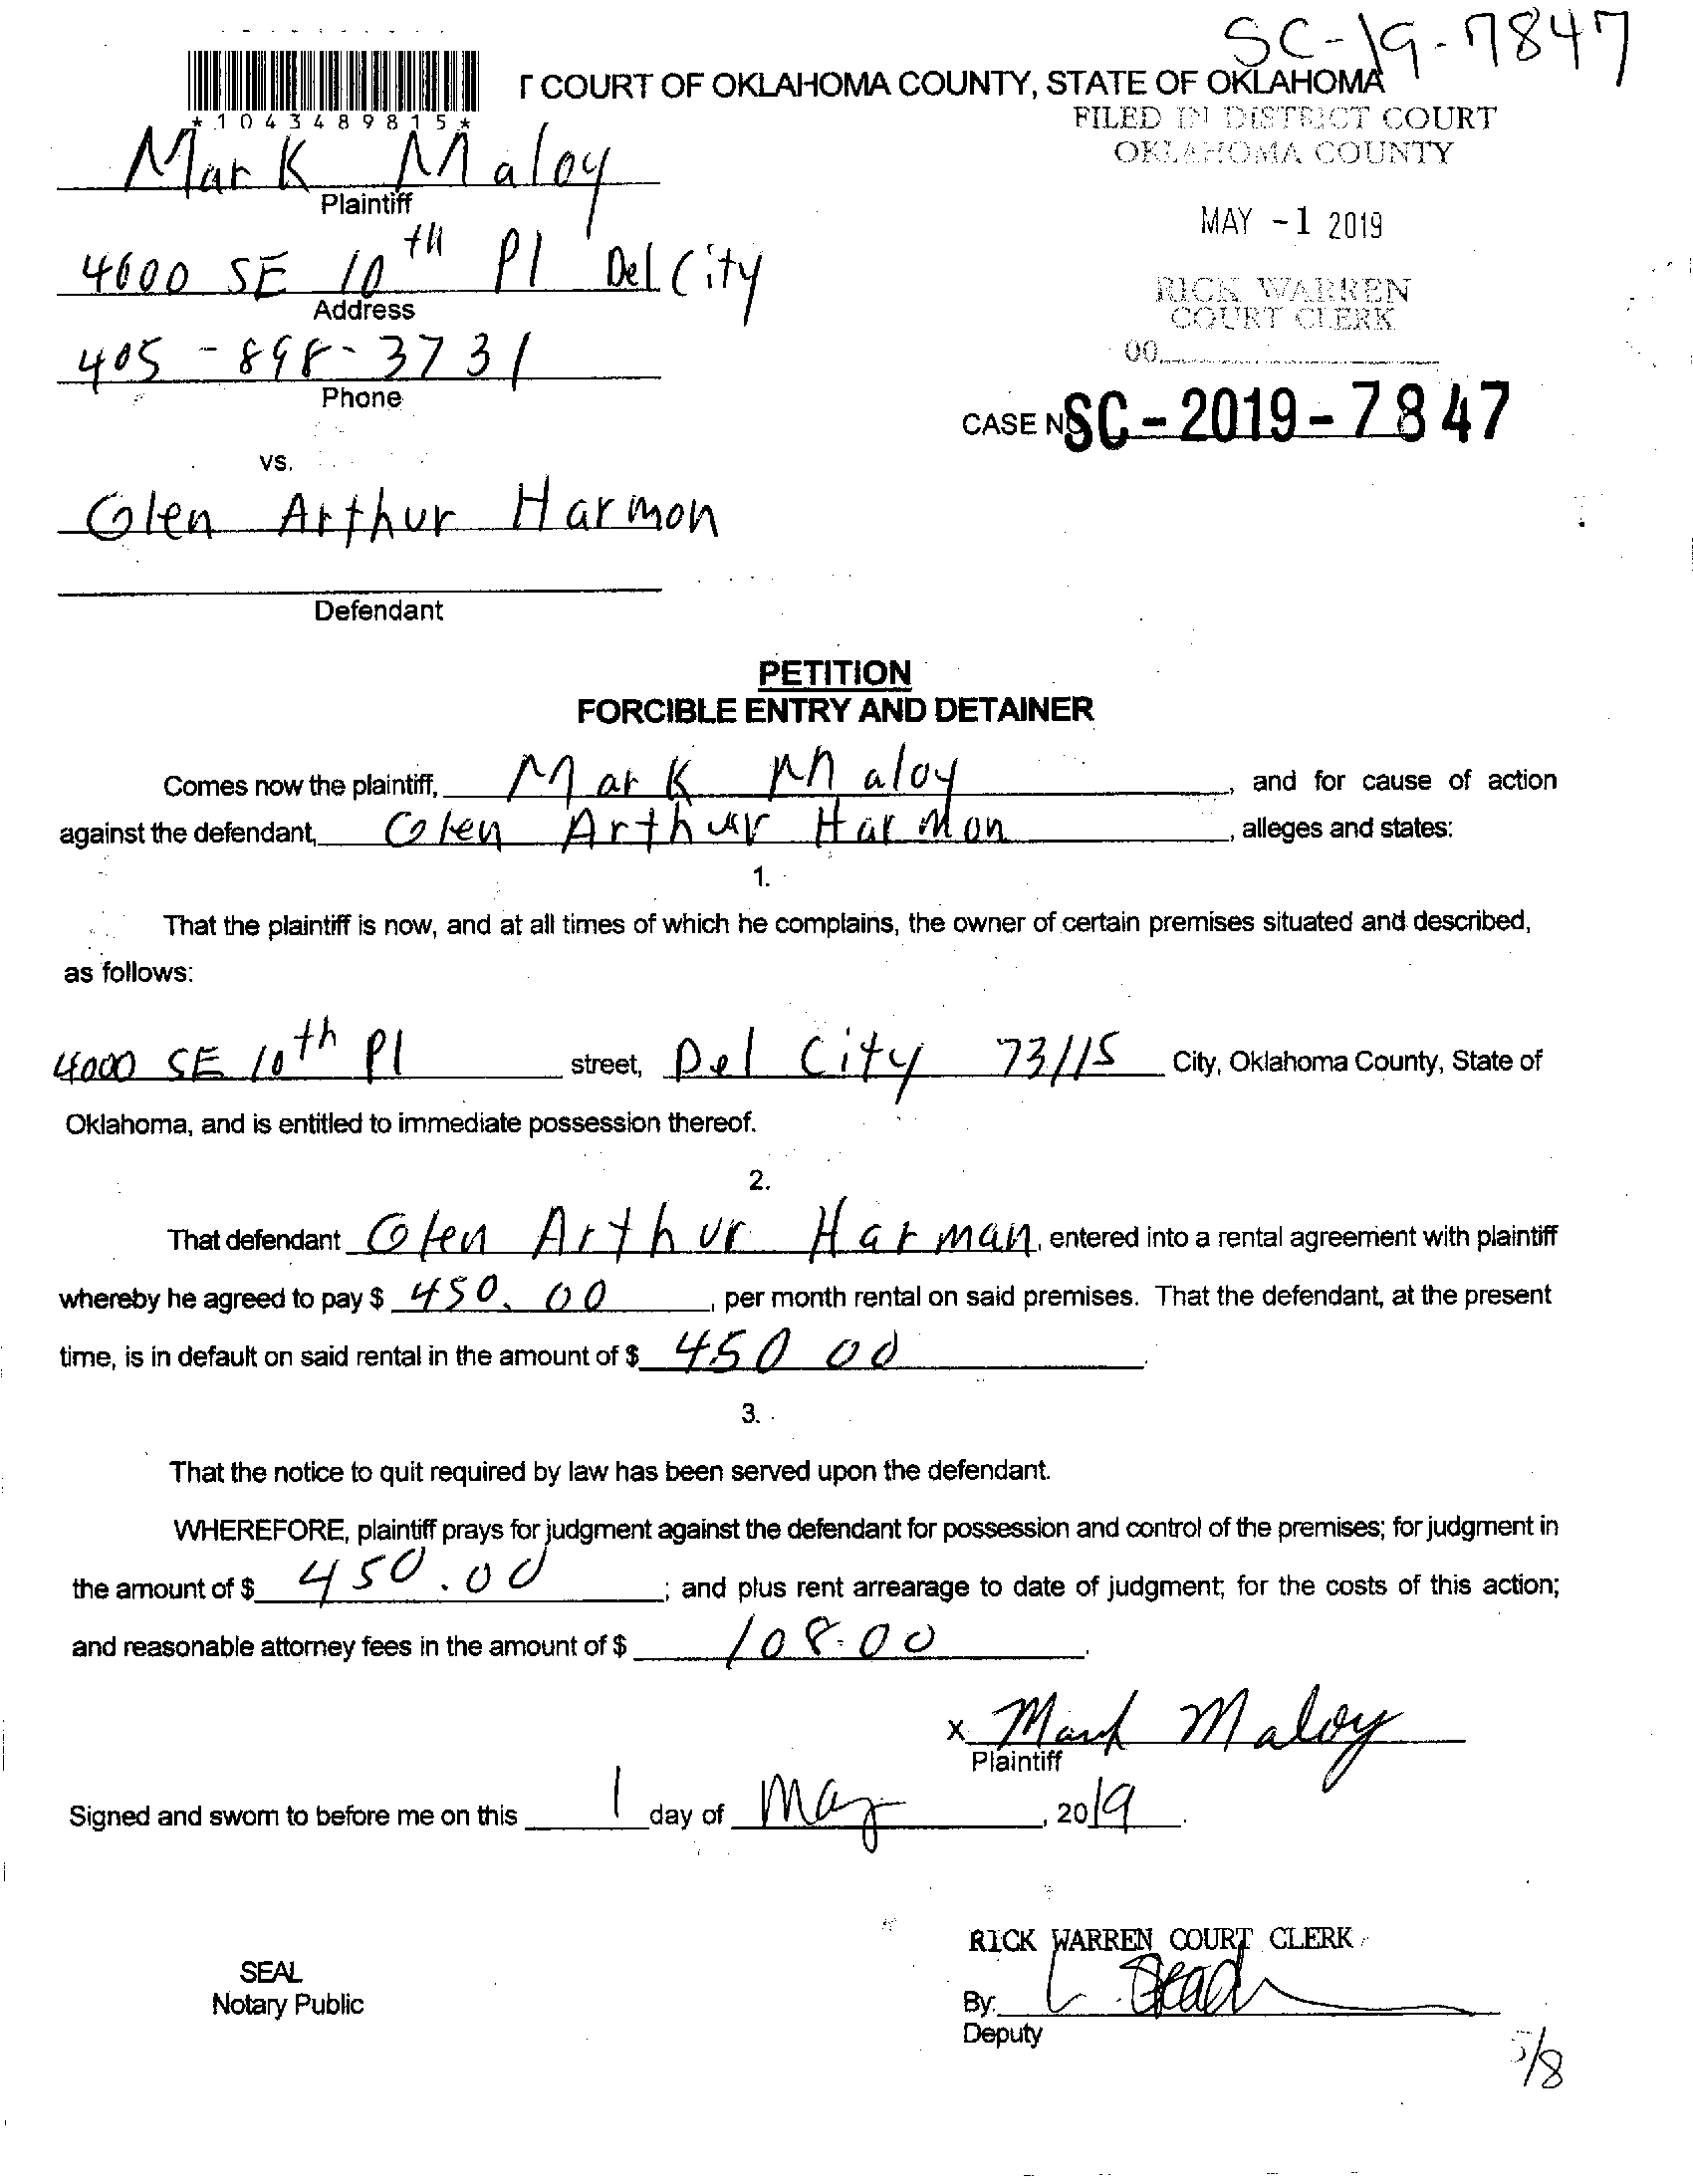 SC-19-7847
T COURT OF OKLAHOMA COUNTY, STATE OF OKLAHOMA
*1043489815*
FILED IN DISTRICT COURT
OKLAHOMA COUNTY
Mark Maloy
Plaintiff
MAY -1 2019
4000 SE 10th Pl Del City
Address
RICK WARREN
COURT CLERK
405-898-3731
Phone
00
CASE NO SC-2019-7847
vs.
Glen Arthur Harmon
Defendant
PETITION
FORCIBLE ENTRY AND DETAINER
Comes now the plaintiff, Mark Maloy, and for cause of action
against the defendant, Glen Arthur Harmon, alleges and states:
1.
That the plaintiff is now, and at all times of which he complains, the owner of certain premises situated and described,
as follows:
4000 SE 10th Pl street, Del City 73115 City, Oklahoma County, State of
Oklahoma, and is entitled to immediate possession thereof.
2.
That defendant Glen Arthur Harman, entered into a rental agreement with plaintiff
whereby he agreed to pay $ 450.00, per month rental on said premises. That the defendant, at the present
time, is in default on said rental in the amount of $ 450 00.
3.
That the notice to quit required by law has been served upon the defendant.
WHEREFORE, plaintiff prays for judgment against the defendant for possession and control of the premises; for judgment in
the amount of $ 450.00; and plus rent arrearage to date of judgment; for the costs of this action;
and reasonable attorney fees in the amount of $ 108.00.
x Mark Maloy
Plaintiff
Signed and sworn to before me on this 1 day of May, 2019.
RICK WARREN COURT CLERK
SEAL
Notary Public
By:
Deputy
5/8